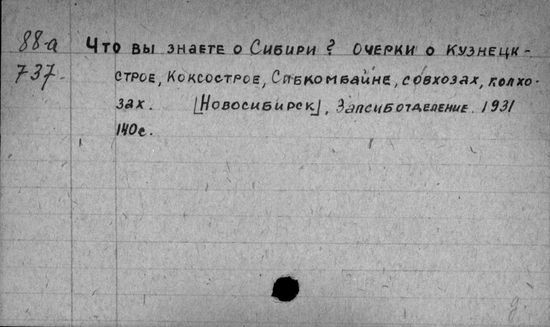 88-а Что вы знаете о Сибири? Очерки о Кузнецк-
737. строе, Коксострое, Сибкомбайне, совхозах, колхо-
зах. [Новосибирск], Запсиботделение. 1931
140с.